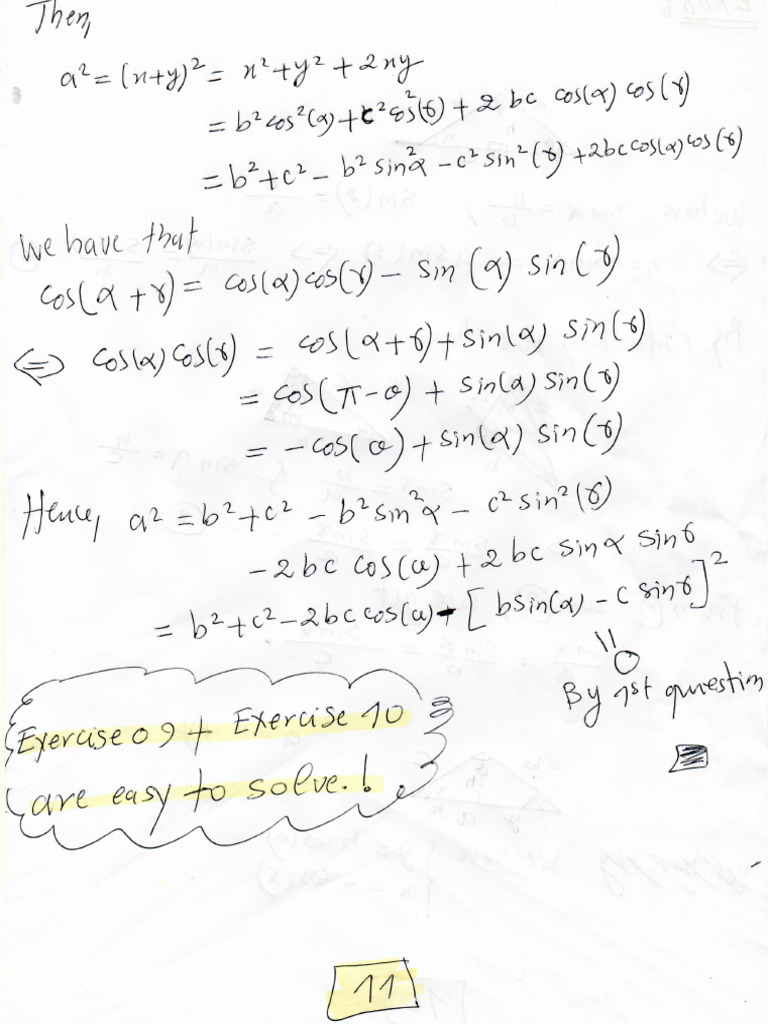 Then,
a² = (x+y)² = x² + y² + 2xy
= b² cos²(α) + c² cos²(γ) + 2bc cos(α) cos(γ)
= b² + c² − b² sin²α − c² sin²(γ) + 2bc cos(α) cos(γ)
We have that
cos(α + γ) = cos(α) cos(γ) − sin(α) sin(γ)
⇔ cos(α) cos(γ) = cos(α+γ) + sin(α) sin(γ)
= cos(π−θ) + sin(α) sin(γ)
= −cos(θ) + sin(α) sin(γ)
Hence, a² = b² + c² − b² sin²α − c² sin²(γ)
− 2bc cos(θ) + 2bc sinα sinγ
= b² + c² − 2bc cos(θ) − [b sin(α) − c sinγ]²
0
By 1st question
Exercise 09 + Exercise 10
are easy to solve.!
11